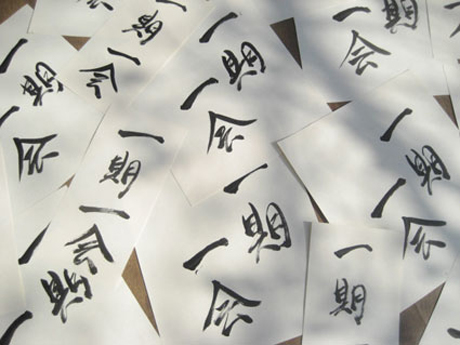 一期一会
一期一会
一期一会
期一会
一期一会
一期一会
一期一会
一期一
一期